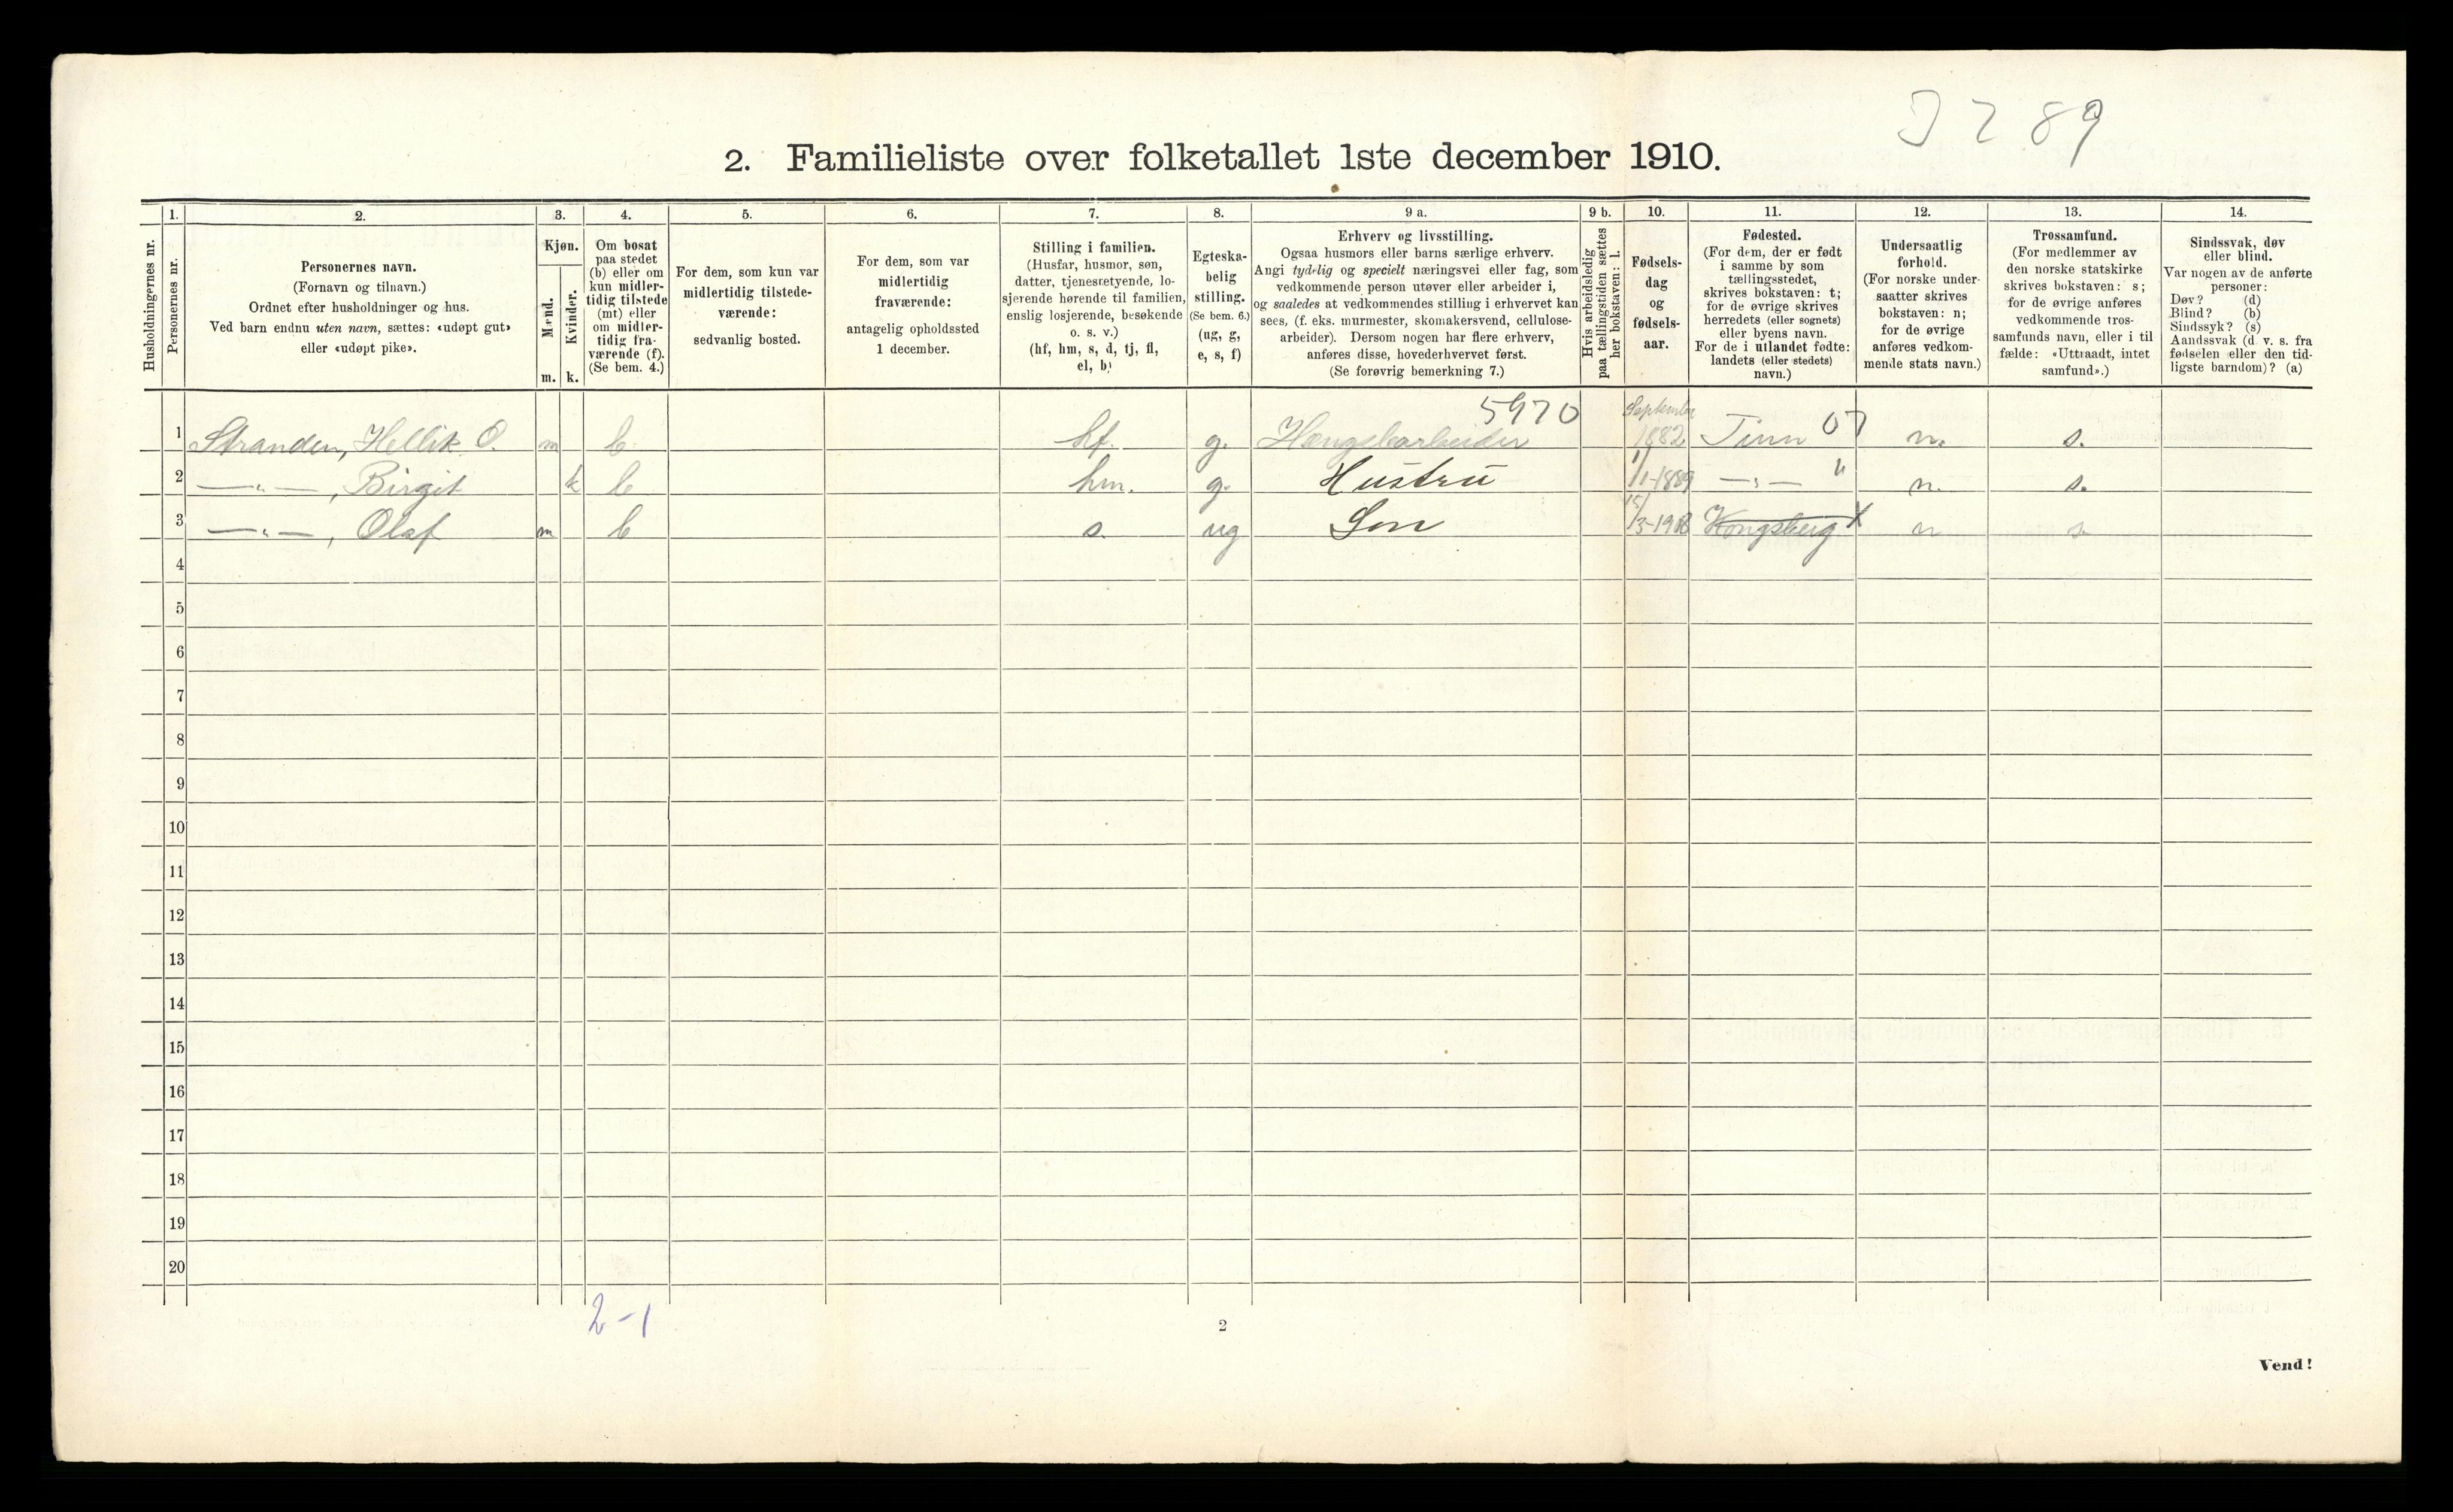 J 2 89
2. Familieliste over folketallet 1ste december 1910.
Husholdningernes nr.
1.
Personernes nr.
2.
Personernes navn.
(Fornavn og tilnavn.)
Ordnet efter husholdninger og hus.
Ved barn endnu uten navn, sættes: «udøpt gut»
eller «udøpt pike».
3.
Kjøn.
Mænd.
m.
Kvinder.
k.
4.
Om bosat
paa stedet
(b) eller om
kun midler-
tidig tilstede
(mt) eller
om midler-
tidig fra-
værende (f).
(Se bem. 4.)
5.
For dem, som kun var
midlertidig tilstede-
værende:
sedvanlig bosted.
6.
For dem, som var
midlertidig
fraværende:
antagelig opholdssted
1 december.
7.
Stilling i familien.
(Husfar, husmor, søn,
datter, tjenestetyende, lo-
sjerende hørende til familien,
enslig losjerende, besøkende
o. s. v.)
(hf, hm, s, d, tj, fl,
el, b)
8.
Egteska-
belig
stilling.
(Se bem. 6.)
(ug, g,
e, s, f)
9 a.
Erhverv og livsstilling.
Ogsaa husmors eller barns særlige erhverv.
Angi tydelig og specielt næringsvei eller fag, som
vedkommende person utøver eller arbeider i,
og saaledes at vedkommendes stilling i erhvervet kan
sees, (f. eks. murmester, skomakersvend, cellulose-
arbeider). Dersom nogen har flere erhverv,
anføres disse, hovederhvervet først.
(Se forøvrig bemerkning 7.)
9 b.
Hvis arbeidsledig
paa tællingstiden sættes
her bokstaven: l.
10.
Fødsels-
dag
og
fødsels-
aar.
11.
Fødested.
(For dem, der er født
i samme by som
tællingsstedet,
skrives bokstaven: t;
for de øvrige skrives
herredets (eller sognets)
eller byens navn.
For de i utlandet fødte:
landets (eller stedets)
navn.)
12.
Undersaatlig
forhold.
(For norske under-
saatter skrives
bokstaven: n;
for de øvrige
anføres vedkom-
mende stats navn.)
13.
Trossamfund.
(For medlemmer av
den norske statskirke
skrives bokstaven: s;
for de øvrige anføres
vedkommende tros-
samfunds navn, eller i til
fælde: «Uttraadt, intet
samfund».)
14.
Sindssvak, døv
eller blind.
Var nogen av de anførte
personer:
Døv? (d)
Blind? (b)
Sindssyk? (s)
Aandssvak (d. v. s. fra
fødselen eller den tid-
ligste barndom)? (a)
1 Stranden, Hellik O. m b hf. g. 5970 September 1882 Tinn 07 n. s.
2 —„—, Birgit k b hm. g. Hustru 1/1-1889 —„— " n. s.
3 —„—, Olaf m b s. ug Søn 15/3-1908 Kongsberg X n s.
4
5
6
7
8
9
10
11
12
13
14
15
16
17
18
19
20
2-1
2
Vend!